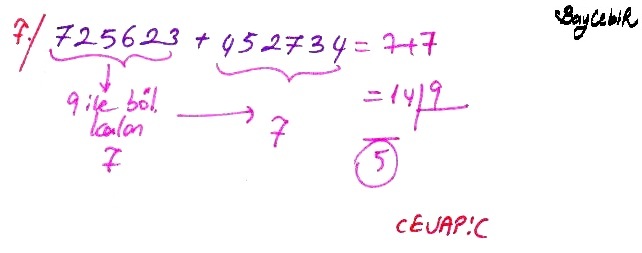 BayCebiR
7./ 725623 + 452734 = 7+7
9 ile böl. kalan 7 → 7
= 14 | 9
5
CEVAP:C